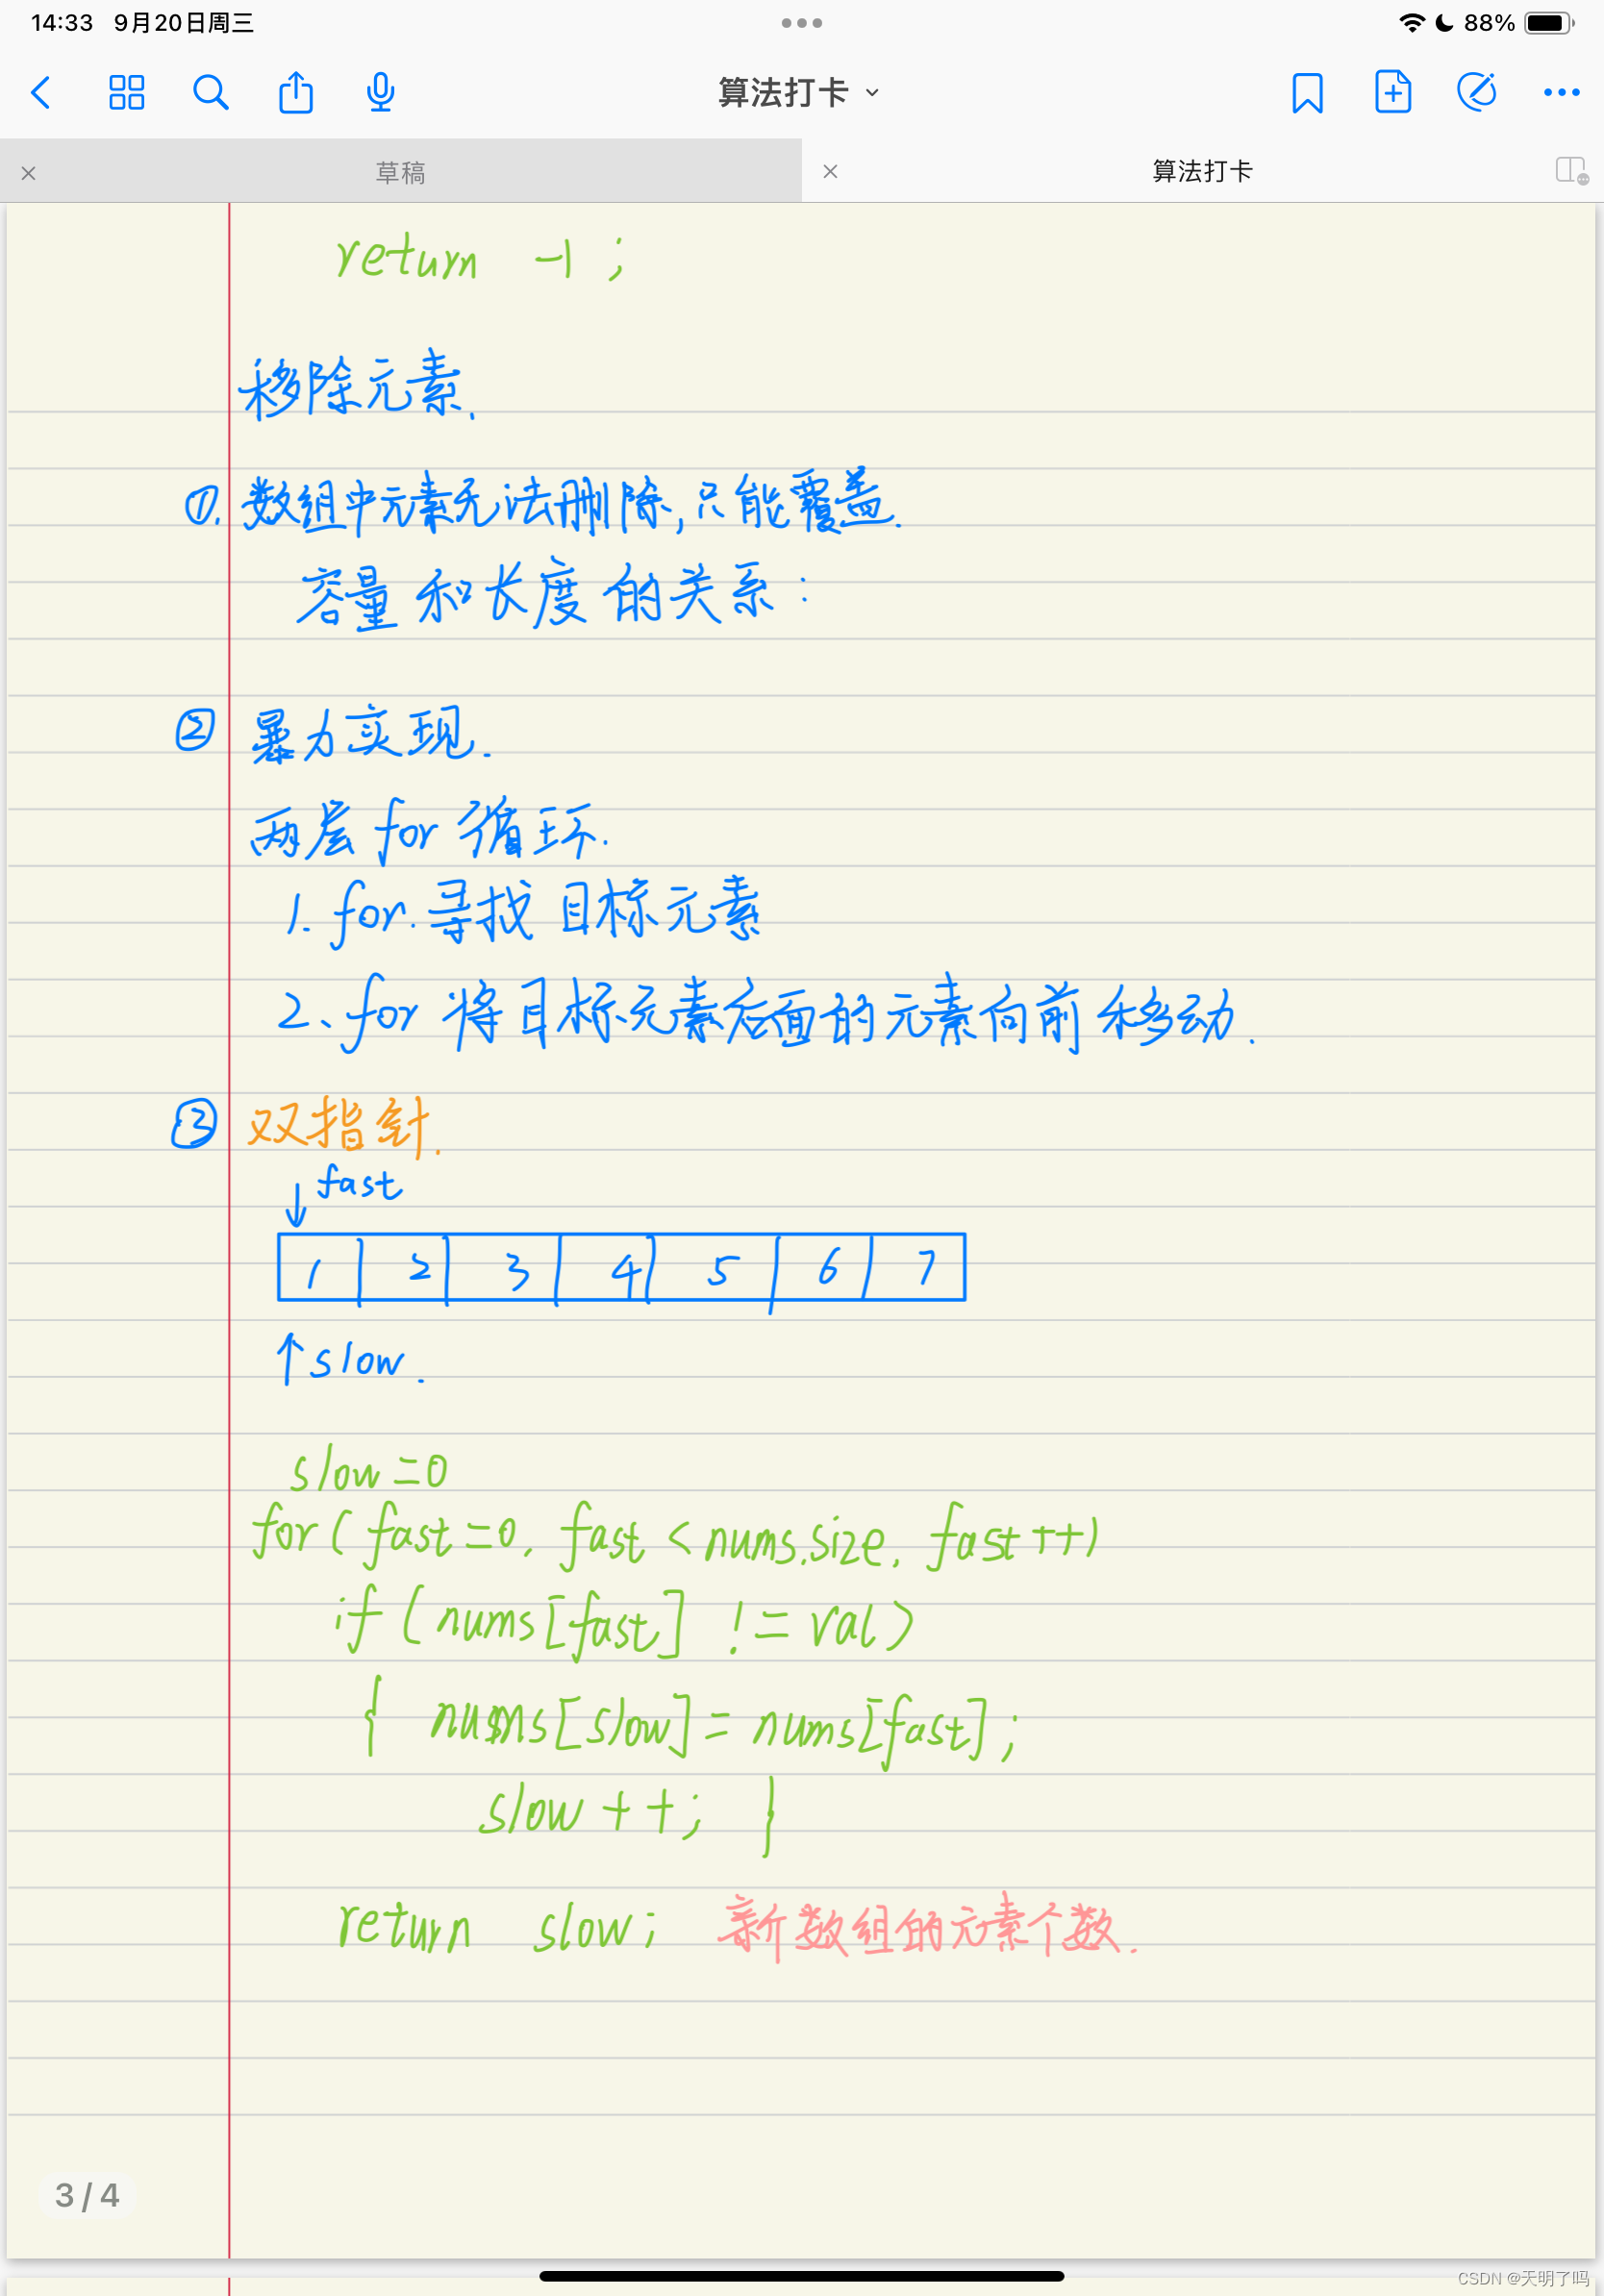 14:33 9月20日周三
88%
算法打卡
草稿
算法打卡
return -1 ;
移除元素.
①. 数组中元素无法删除,只能覆盖.
容量和长度的关系:
② 暴力实现.
两层for循环.
1. for. 寻找目标元素
2、for 将目标元素后面的元素向前移动.
③ 双指针.
↓ fast
1 2 3 4 5 6 7
↑ slow.
slow=0
for( fast=0. fast <nums.size. fast++)
if (nums[fast] !=val)
{ nums[slow]=nums[fast];
slow++; }
return slow; 新数组的元素个数.
3/4
CSDN @天明了吗